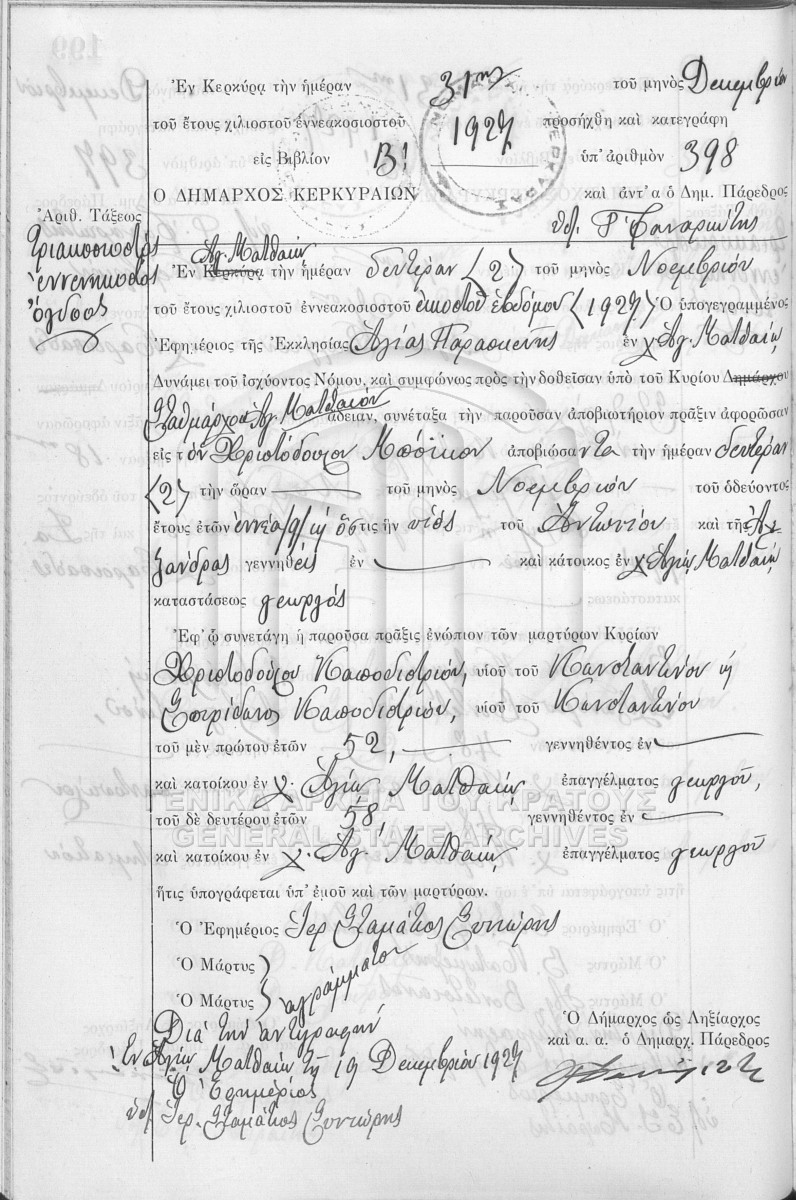 Ἐν Κερκύρᾳ τὴν ἡμέραν 31ην τοῦ μηνὸς Δεκεμβρίου
τοῦ ἔτους χιλιοστοῦ ἐννεακοσιοστοῦ 1927 προσήχθη καὶ κατεγράφη
εἰς Βιβλίον Β! ὑπ' ἀριθμὸν 398
Ο ΔΗΜΑΡΧΟΣ ΚΕΡΚΥΡΑΙΩΝ καὶ ἀντ' α ὁ Δημ. Πάρεδρος
Ἀριθ. Τάξεως
τριακοσιοστὸς
ἐννενηκοστὸς
ὄγδοος
Ἁγ. Ματθαίῳ
Ἐν Κερκύρᾳ τὴν ἡμέραν δευτέραν (2) τοῦ μηνὸς Νοεμβρίου
τοῦ ἔτους χιλιοστοῦ ἐννεακοσιοστοῦ εἰκοστοῦ ἑβδόμου (1927) Ὁ ὑπογεγραμμένος
Ἐφημέριος τῆς Ἐκκλησίας Ἁγίας Παρασκευῆς ἐν χ. Ἁγ. Ματθαίῳ
Δυνάμει τοῦ ἰσχύοντος Νόμου, καὶ συμφώνως πρὸς τὴν δοθεῖσαν ὑπὸ τοῦ Κυρίου Δημάρχου
Σταθμάρχου Ἁγ. Ματθαίου ἄδειαν, συνέταξα τὴν παροῦσαν ἀποβιωτήριον πρᾶξιν ἀφορῶσαν
εἰς τὸν Χριστόδουλον Μποΐκον ἀποβιώσαντα τὴν ἡμέραν δευτέραν
(2) τὴν ὥραν τοῦ μηνὸς Νοεμβρίου τοῦ ὁδεύοντος
ἔτους ἐτῶν ἐννέα /9/ ὅστις ἦν υἱὸς τοῦ Ἀντωνίου καὶ τῆς Ἀλε-
ξάνδρας γεννηθεὶς ἐν καὶ κάτοικος ἐν χ. Ἁγίῳ Ματθαίῳ
καταστάσεως γεωργός
Ἐφ' ᾧ συνετάγη ἡ παροῦσα πρᾶξις ἐνώπιον τῶν μαρτύρων Κυρίων
Χριστοδούλου Καποδιστρίου, υἱοῦ τοῦ Κωνσταντίνου
Σπυρίδωνος Καποδιστρίου, υἱοῦ τοῦ Κωνσταντίνου
τοῦ μὲν πρώτου ἐτῶν 52, γεννηθέντος ἐν
καὶ κατοίκου ἐν χ. Ἁγίῳ Ματθαίῳ ἐπαγγέλματος γεωργοῦ,
τοῦ δὲ δευτέρου ἐτῶν 58, γεννηθέντος ἐν
καὶ κατοίκου ἐν χ. Ἁγ. Ματθαίῳ, ἐπαγγέλματος γεωργοῦ
ΓΕΝΙΚΑ ΑΡΧΕΙΑ ΤΟΥ ΚΡΑΤΟΥΣ
GENERAL STATE ARCHIVES
ἥτις ὑπογράφεται ὑπ' ἐμοῦ καὶ τῶν μαρτύρων.
Ὁ Ἐφημέριος Ἱερ. Σταμάτιος
Ὁ Μάρτυς
Ὁ Μάρτυς ἀγράμματοι
Διὰ τὴν ἀντιγραφὴν
Ἐν Ἁγίῳ Ματθαίῳ τῇ 19 Δεκεμβρίου 1927
Ὁ Ἐφημέριος
Ἱερ. Σταμάτιος
Ὁ Δήμαρχος ὡς Ληξίαρχος
καὶ α. α. ὁ Δημαρχ. Πάρεδρος